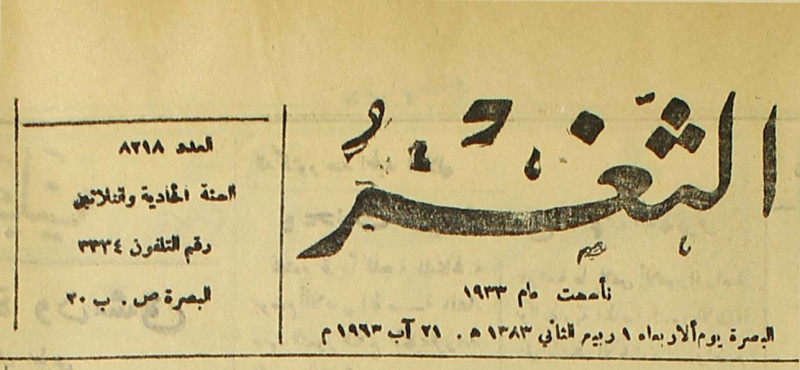 الثغر
تأسست عام ١٩٣٣
البصرة يوم الاربعاء ١ ربيع الثاني ١٣٨٣ ه . ٢١ آب ١٩٦٣ م
العدد ٨٢١٨
السنة الحادية والثلاثين
رقم التلفون ٣٣٣٤
البصرة ص . ب ٢٠